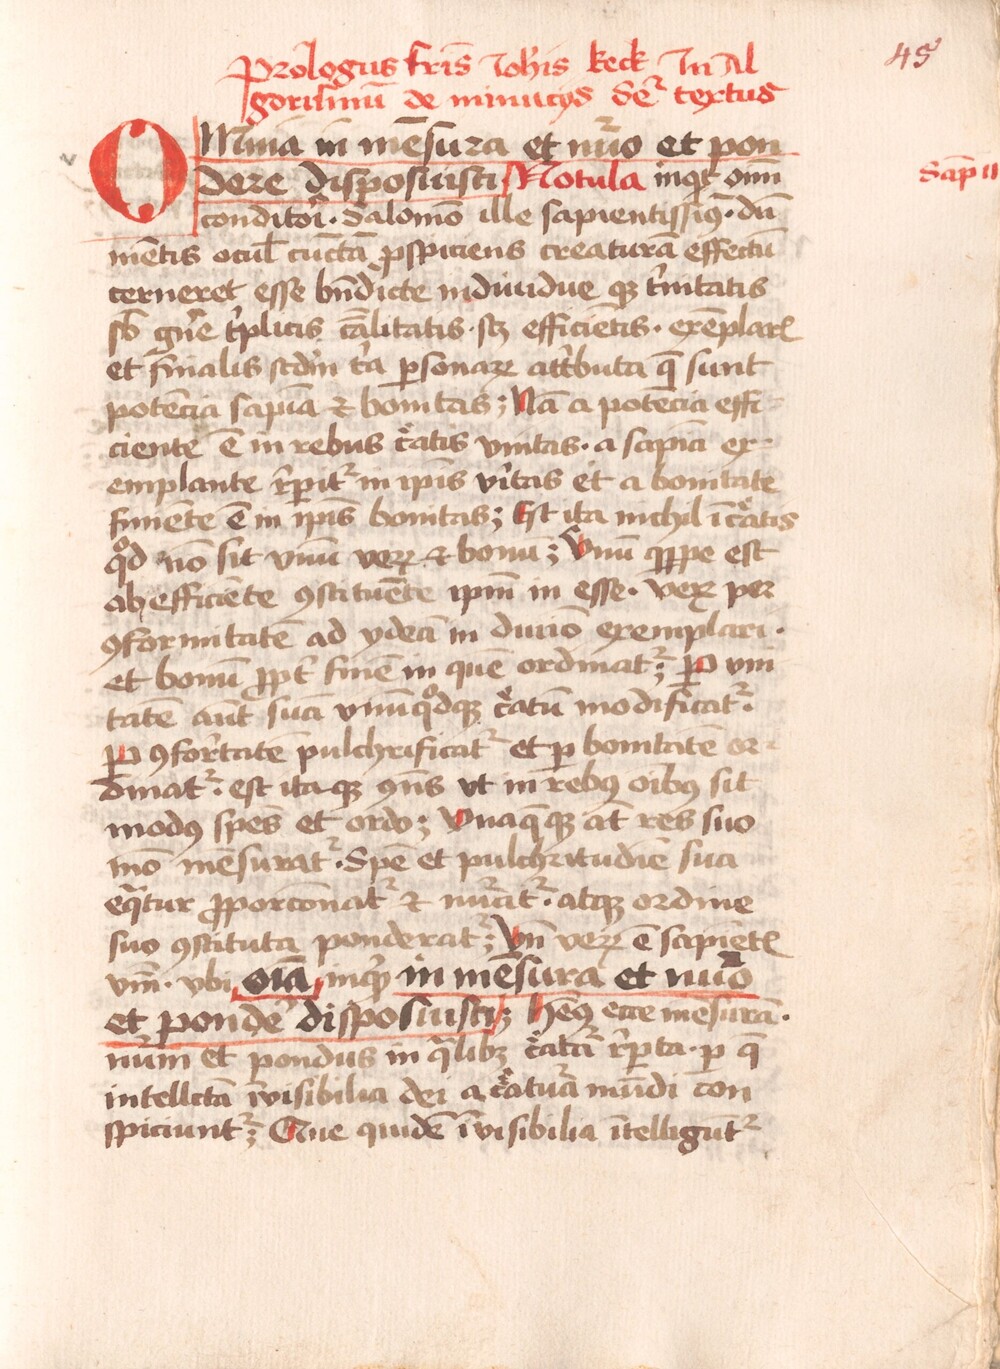 45
Prologus fr̄is Joh̄is keck In Al
gorismū de minucijs Sēr textus
OMnia in mēsura et nūo et pon
dere disposuisti Notula inqt om̄i
Sap̄ 11
conditōi · Salomō ille sapientissiꝯ · dū
mētis ocul̄ cūcta ꝑspiciens creaturā effectū
cerneret esse bn̄dicte indiuidue qꝫ t̓nitatis
sb̄ gn̓e t̓plicis cālitatis · scꝫ efficiētis · exēplar̄
et finalis scd̓m t̓a ꝑsonaꝝ att̓buta q̄ sunt
potēcia sapīa ⁊ bonitas ; Nā a potēcia effi
ciente ē in rebus c̓atis vnitas · a sapīa ex
emplante r̓ꝑit̓ in ip̄is v̓itas et a bonitate
finiēte ē in ip̄is bonitas ; Est ita nichil ī c̓atis
qd̓ nō sit vnū veꝝ ⁊ bonū ; Vnū ꝓpe est
ab efficiēte ꝯstituēte ip̄m in esse · veꝝ per
ꝯformitatē ad ydeā in diuīo exemplari ·
et bonū ꝓpt̓ finē in quē ordinat̓ ; P vni
tatē aūt suā vnūqd̓qꝫ c̓atū modificat̓ ·
P ꝯfor̓tatē pulchrificat̓ et p bonitatē or
dinat̓ · est itaqꝫ ꝯn̄s vt in rebꝯ oībꝯ sit
modꝯ sp̄es et ordo ; Vnaq̄qꝫ āt res suo
mō mēsurat̓ · Spē et pulchritudīe sua
eq̄tur ꝓporcōnat̓ ⁊ nūat̓ · atqꝫ ordine
suo ꝯstituta ponderat̓ ; Vn̄ veꝝ ē sapiēt̄
vm̄ · vbi oīa inqt in mēsura et nūo
et pondē disposuisti ; Hēꝯ ecce mēsurā ·
nūm et pondus in q̄libꝫ c̓atā r̓ꝑta · p q̄
intellcta īvisibilia dei a c̓atura mūdi con
spiciunt̓ ; Que quidē īvisibilia ītelligūt̓